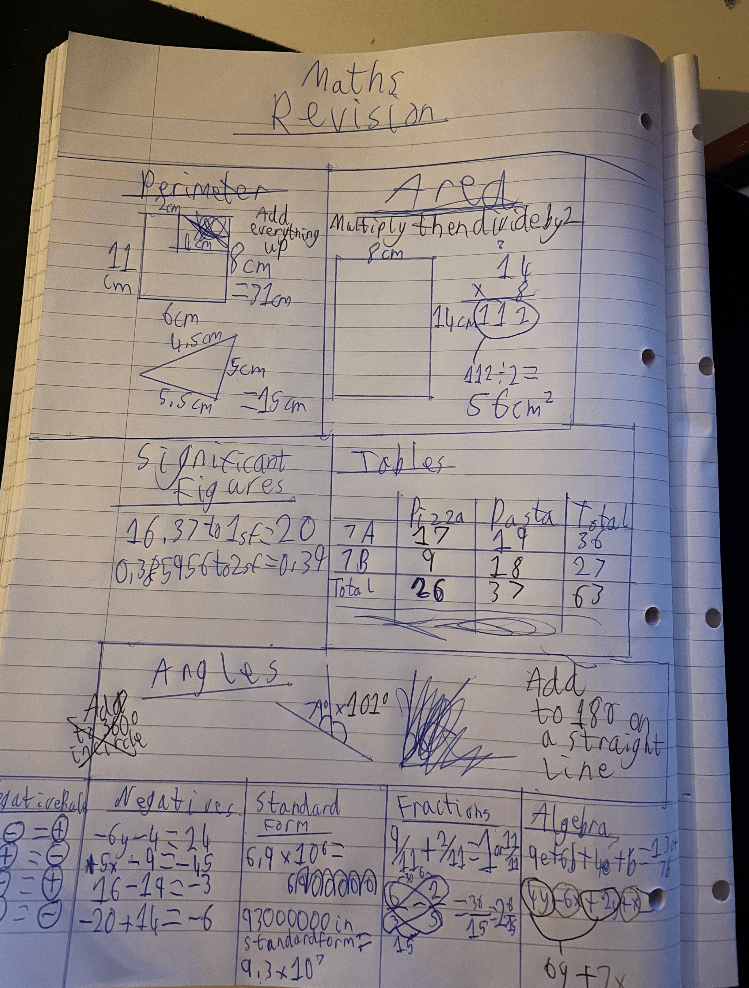 Maths
Revision
Perimeter
2cm
Add
everything
up
11
cm
8cm
=31cm
6cm
4.5cm
5cm
5.5cm
=15cm
Area
Multiply then divide by 2
8cm
14cm
2
14
x 8
112
112÷2=
56cm²
Significant
Figures
16.37 to 1sf=20
0.385956 to 2sf=0.39
Tables
Pizza Pasta Total
7A 17 19 36
7B 9 18 27
Total 26 37 63
Angles
79° x 101°
Add
to 180 on
a straight
line
Add
to 360°
in circle
⊖=⊕
+=⊖
-=⊕
=⊖
Negatives
-6 -4=24
5x -9=-45
16-19=-3
-20+14=-6
Standard
Form
6.9x10⁶=
6,9000000
93000000 in
standard form=
9.3x10⁷
Fractions
9/11+2/11=1 or 11/11
15
Algebra
4y -6x +2y +x
6y+7x